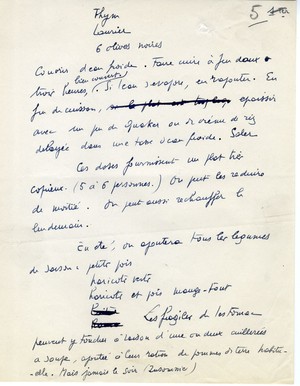 5
Thym
Laurier
6 olives noires
Couvrir d'eau froide. Faire cuire à feu doux
trois heures, bien couvert. Si l'eau s'évapore, en rajouter. En
fin de cuisson, épaissir
avec un peu de Quaker ou de crème de riz
délayée dans une tasse d'eau froide. Saler
Ces doses fournissent un plat très
copieux. (5 à 6 personnes.) On peut les réduire
de moitié. On peut aussi réchauffer le
lendemain.
En été, on ajoutera tous les légumes
de saison : petits pois
haricots verts
haricots et pois mange-tout
Les fragiles de l'estomac
peuvent y toucher à raison d'une ou deux cuillerées
à soupe, ajoutées à leur ration de pommes de terre habitu-
elle. Mais jamais le soir (Insomnie)